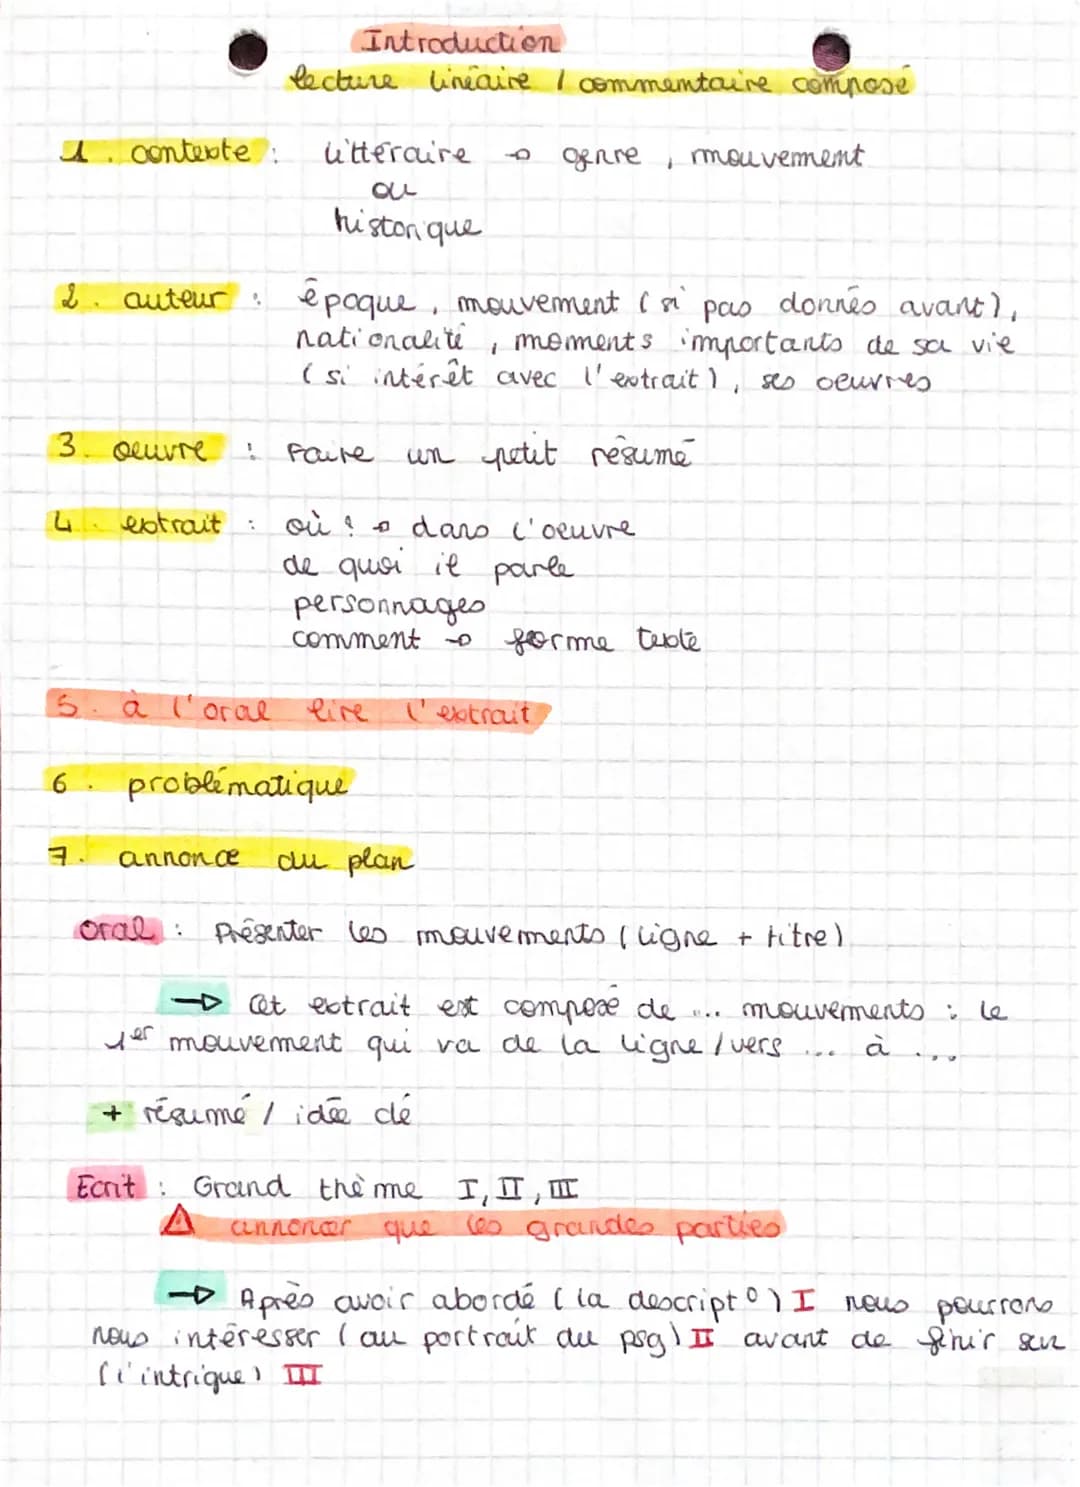 Introduction
lecture linéaire / commentaire composé
1. contexte : littéraire → genre, mouvement
ou
historique
2. auteur : époque, mouvement (si pas donnés avant),
nationalité, moments importants de sa vie
(si intérêt avec l'extrait), ses oeuvres
3. oeuvre : Faire un petit résumé
4. extrait : où ? → dans l'oeuvre
de quoi il parle
personnages
comment → forme texte
5. à l'oral lire l'extrait
6. problématique
7. annonce du plan
oral : Présenter les mouvements (ligne + titre)
→ Cet extrait est composé de ... mouvements : le
1er mouvement qui va de la ligne / vers ... à ...
+ résumé / idée clé
Ecrit : Grand thème I, II, III
⚠ annoncer que les grandes parties
→ Après avoir abordé (la descript°) I nous pourrons
nous intéresser (au portrait du psg) II avant de finir sur
(l'intrigue) III